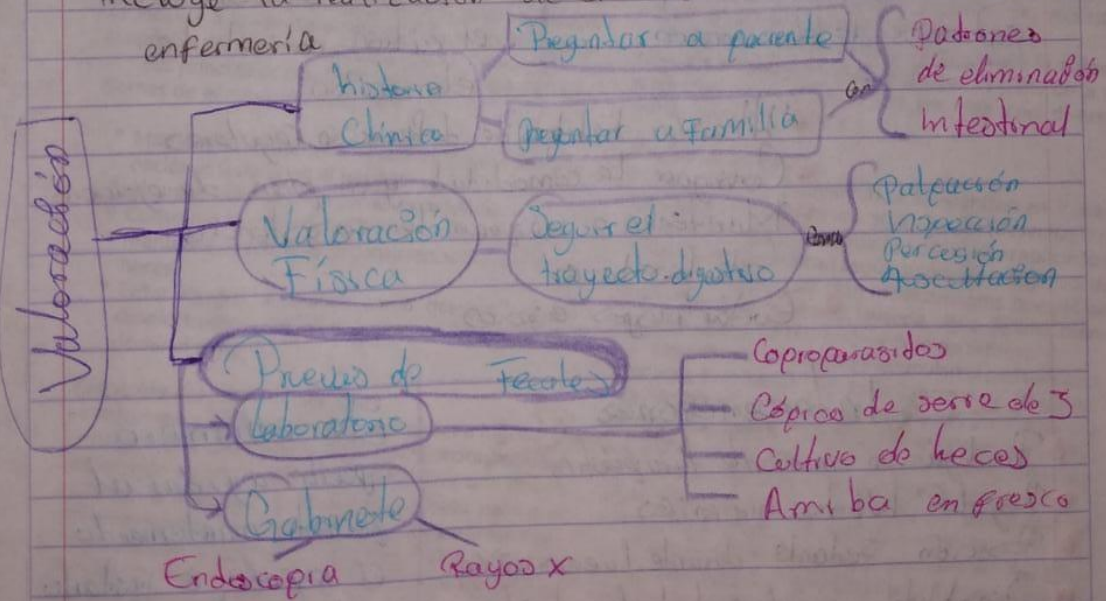 enfermería
Valoración
historia
Clínica
Preguntar a paciente
Preguntar a Familia
Con
Patrones
de eliminación
intestinal
Valoración
Física
Seguir el
trayecto digestivo
Como
Palpación
Inspección
Percusión
Auscultación
de Fecales
Laboratorio
Coproparasitos
Cópico de serie de 3
Cultivo de heces
Amiba en fresco
Gabinete
Endoscopia
Rayos x